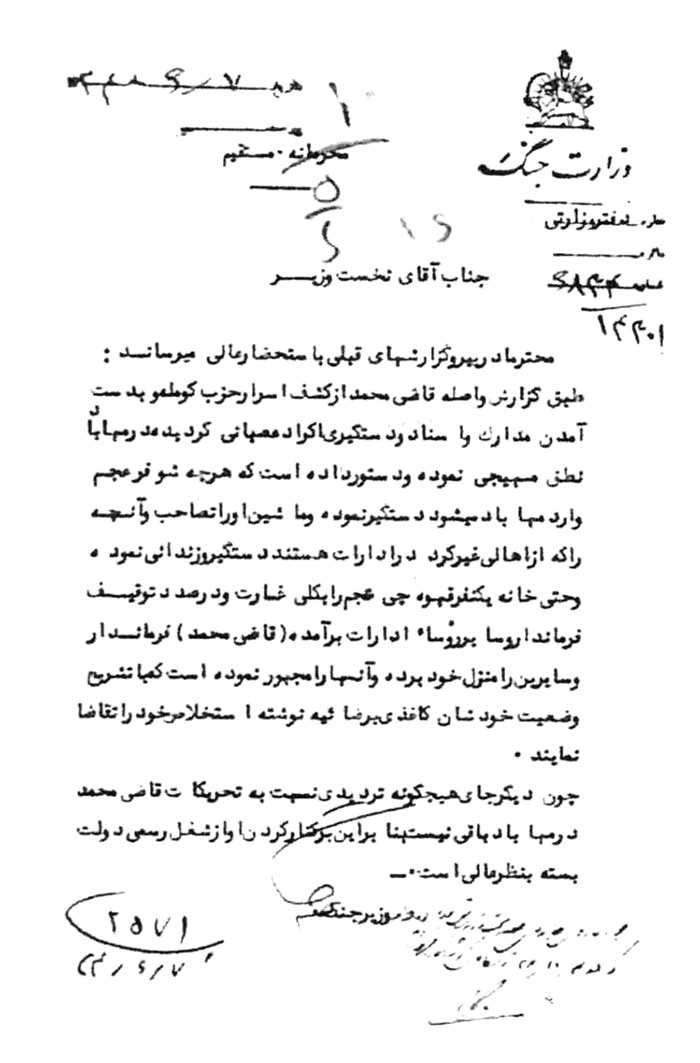 وزارت جنگ
محرمانه - مستقیم
۵
دفتر وزارتی
جناب آقای نخست وزیر
محترما در پیرو گزارشهای قبلی باستحضار عالی میرساند :
طبق گزارش واصله قاضی محمد از کشف اسرار حزب کومله و بدست
آمدن مدارك و اسناد و دستگیری اکراد عصبانی گردیده در مهاباد
نطق مهیجی نموده و دستور داده است که هرچه شوفر عجم
وارد مهاباد میشود دستگیر نموده و ماشین اورا تصاحب و آنچه
را که از اهالی غیر کرد در ادارات هستند دستگیر و زندانی نموده
وحتی خانه یکنفر قهوه چی عجم را بکلی غارت و در صدد توقیف
فرماندار و سایر رؤساء ادارات برآمده (قاضی محمد) فرماندار
وسایرین را منزل خود برده و آنها را مجبور نموده است که با تشریح
وضعیت خودشان کاغذی برضائیه نوشته استخلاص خود را تقاضا
نمایند .
چون دیگر جای هیچگونه تردیدی نسبت به تحریکات قاضی محمد
در مهاباد باقی نیست بنابراین برکنار کردن او از شغل رسمی دولت
بسته بنظر عالی است .
وزیر جنگ
۲۵۷۱